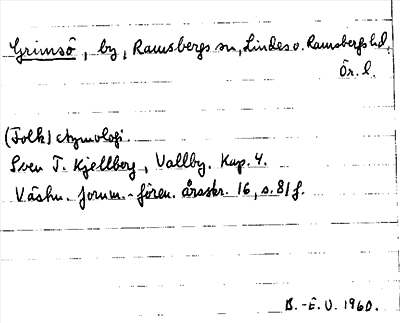 Grimsö, by, Ramsbergs sn, Lindes o. Ramsbergs hd,
Ör. l.
(Folk) etymologi.
Sven T. Kjellberg, Vallby. Kap. 4.
Västm. fornm.-fören. årsskr. 16, s. 81 f.
B.-E. O. 1960.